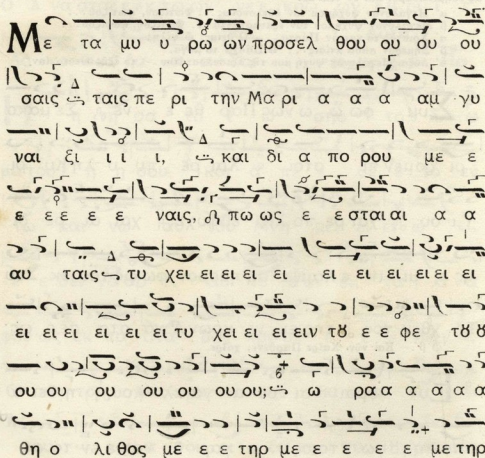 Με τα μυ υ ρω ων προσελ θου ου ου ου
σαις ταις πε ρι την Μα ρι α α α αμ γυ
ναι ξι ι ι ι, και δι α πο ρου με ε
ε ε ε ε ε ναις, πω ως ε ε σται αι α α
αυ ταις τυ χει ει ει ει ει ει ει ει ει ει ει
ει ει ει ει ει ει τυ χει ει ει ειν τȣ ε ε φε τȣ ȣ
ου ου ου ου ου ου ου; ω ρα α α α α α
θη ο λι θος με ε ε τηρ με ε ε ε ε με τηρ